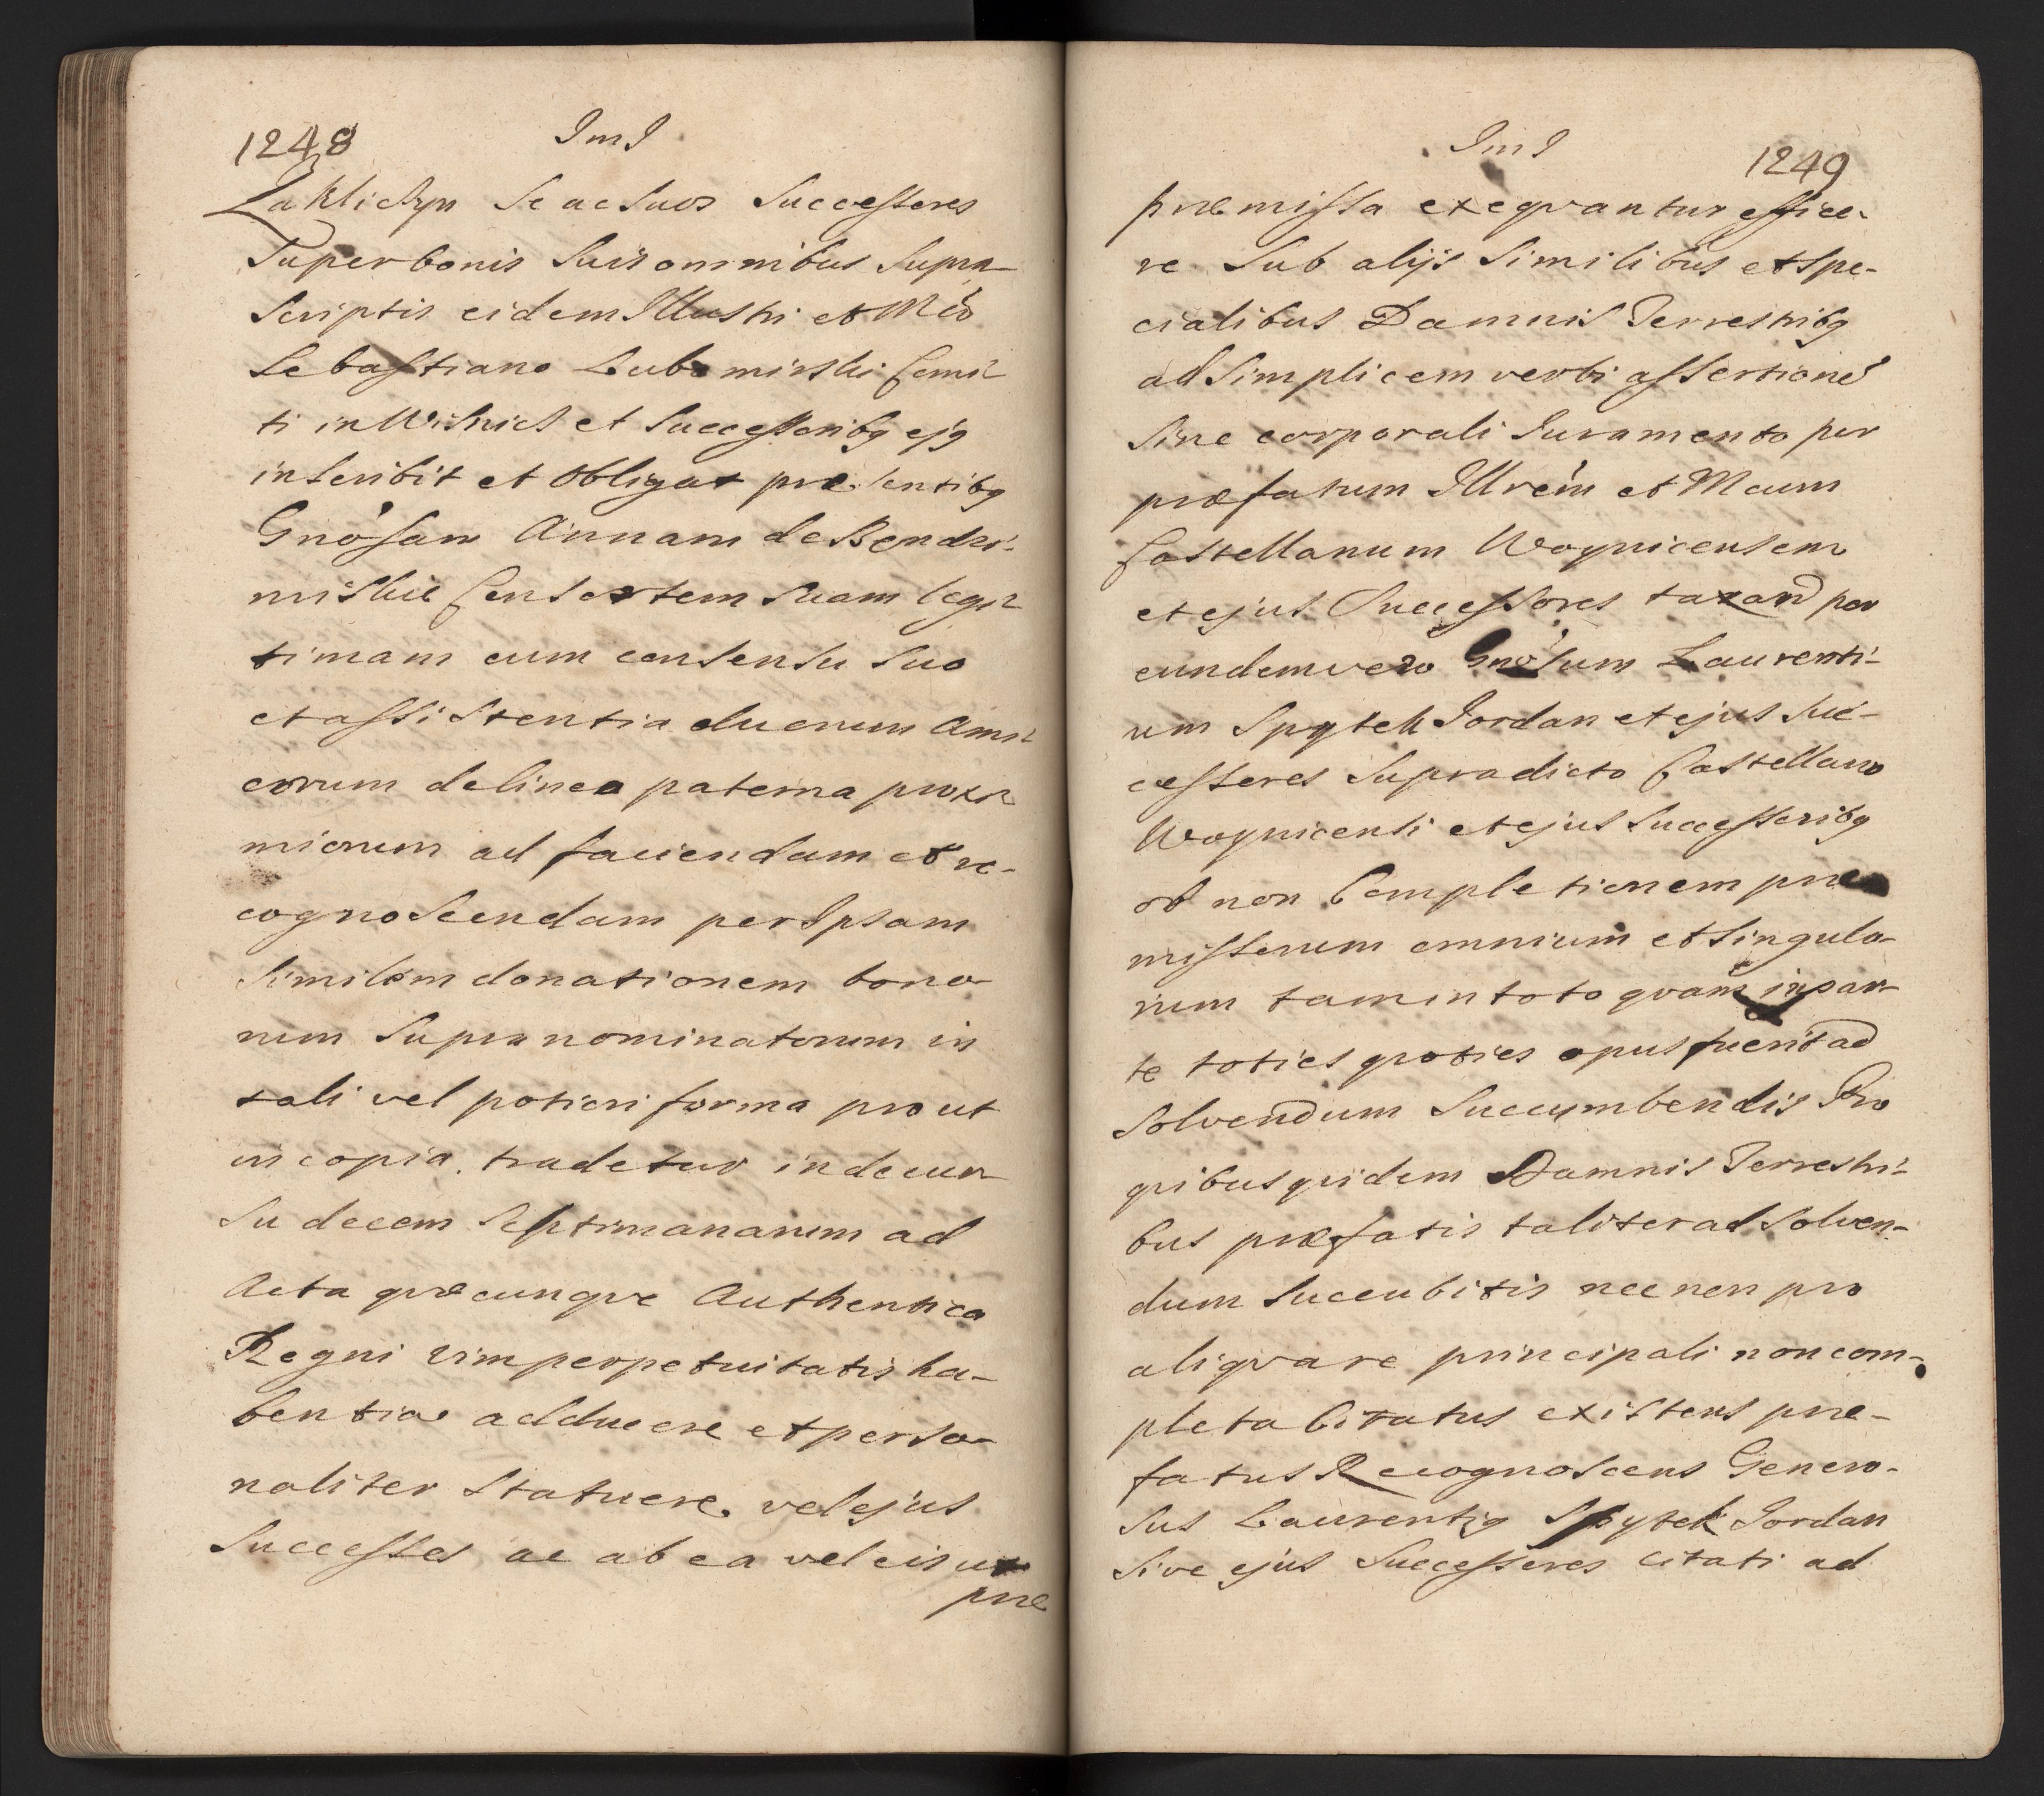 1248 ImI
Zaklichyn Se ac Suos Successores
Super bonis Suis omnibus Supra
Scriptis eidem Illustri et Mco
Sebastiano Lubomirski Comi-
ti in Wisnicz et Successoribq ejq
inscribit et Obligat præsentibq
Gnosam Annam de Bendzi-
nislie Consortem Suam legi-
timam cum consensu Suo
et assistentia duorum Ami-
corum de linea paterna proxi-
miorum ad faciendam et re-
cognoscendam per Ipsam
Similem donationem bono-
rum Supra nominatorum in
tali vel potiori forma prout
in copia tradetur in decur-
su decem Septimanarum ad
Acta quæcunque Authentica
Regni vim perpetuitatis ha-
bentia adducere et perso-
naliter Statuere vel ejus
Successes ac ab ea vel eis ut
præ
ImI 1249
præmissa exequantur effice-
re Sub alijs Similibus et spe-
cialibus Damnis Terrestribq
ad Simplicem verbi assertione
Sine corporali Juramento per
præfatum Illrem et Mcum
Castellanum Woynicensem
et ejus Successores taxand per
eundem vero Gnosum Laurenti-
um Spytek Jordan et ejus Suc-
cessores Supradicto Castellano
Woynicensi et ejus Successoribq
ob non Completionem præ
missorum omnium et Singulo-
rum tam in toto quam in par-
te toties quoties opus fuerit ad
Solvendum Succumbendis Pro
quibus quidem Damnis Terrestri-
bus præfatis taliter ad Solven-
dum Succubitis nec non pro
aliqua re principali non com-
pleta Citatus existens præ-
fatus Recognoscens Genero-
sus Laurentiq Spytek Jordan
Sive ejus Successores Citati ad